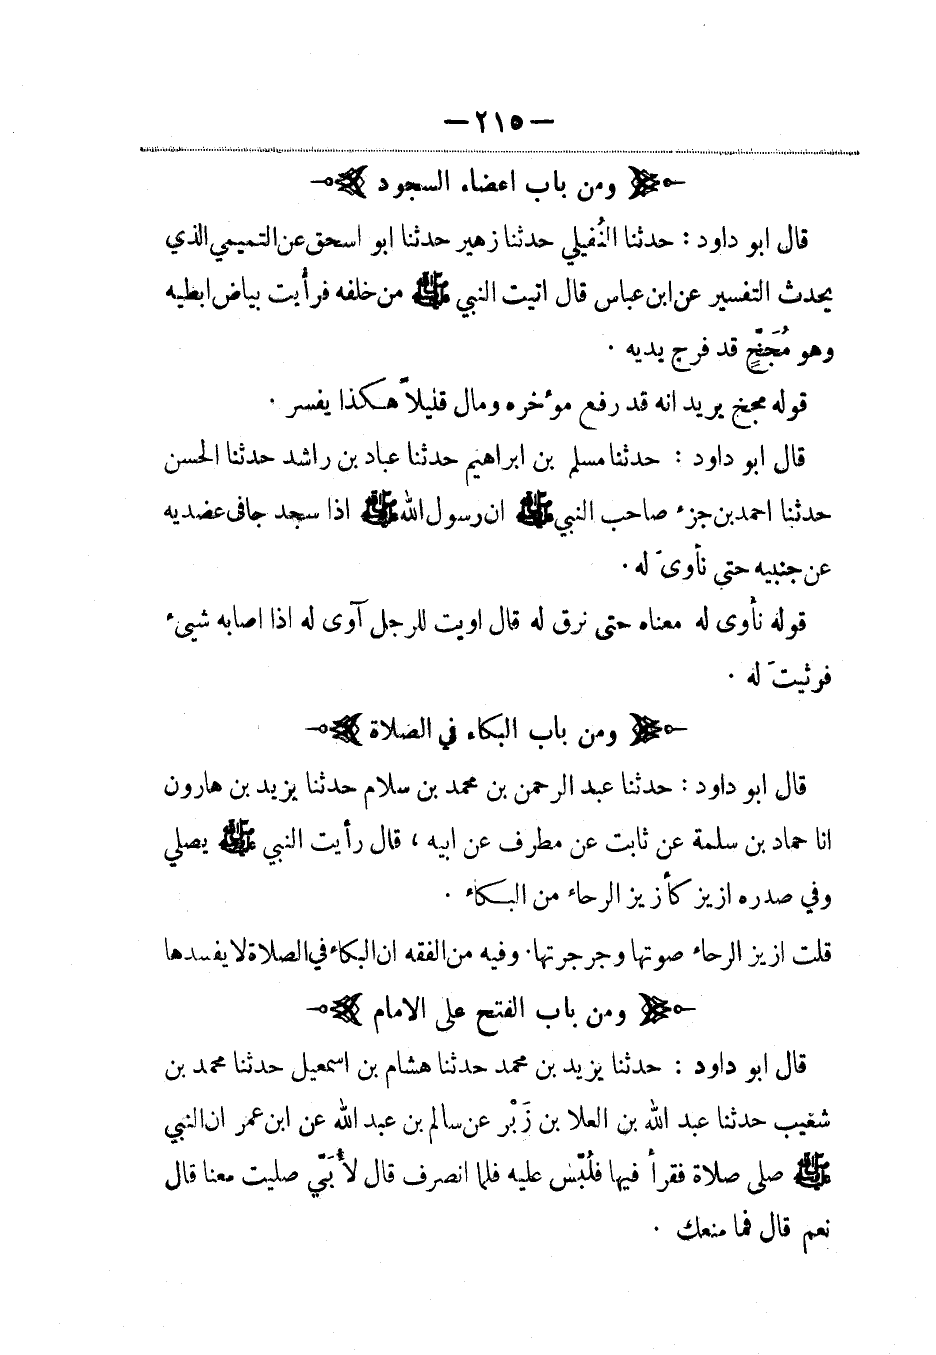 — ٢١٥ —
ومن باب اعضاء السجود
قال ابو داود : حدثنا النُفيلي حدثنا زهير حدثنا ابو اسحق عن التميمي الذي
يحدث التفسير عن ابن عباس قال اتيت النبي ﷺ من خلفه فرأيت بياض ابطيه
وهو مُجَخٍّ قد فرج يديه .
قوله مجخ يريد انه قد رفع موءخره ومال قليلاً هكذا يفسر .
قال ابو داود : حدثنا مسلم بن ابراهيم حدثنا عباد بن راشد حدثنا الحسن
حدثنا احمد بن جزء صاحب النبي ﷺ ان رسول الله ﷺ اذا سجد جافى عضديه
عن جنبيه حتى نأوىَ له .
قوله نأوى له معناه حتى نرق له قال اويت للرجل آوى له اذا اصابه شيىء
فرثيتَ له .
ومن باب البكاء في الصلاة
قال ابو داود : حدثنا عبد الرحمن بن محمد بن سلام حدثنا يزيد بن هارون
انا حماد بن سلمة عن ثابت عن مطرف عن ابيه ، قال رأيت النبي ﷺ يصلي
وفي صدره ازيز كأزيز الرحاء من البكاء .
قلت ازيز الرحاء صوتها وجرجرتها . وفيه من الفقه ان البكاء في الصلاة لا يفسدها
ومن باب الفتح على الامام
قال ابو داود : حدثنا يزيد بن محمد حدثنا هشام بن اسمعيل حدثنا محمد بن
شعيب حدثنا عبد الله بن العلا بن زَبْر عن سالم بن عبد الله عن ابن عمر ان النبي
ﷺ صلى صلاة فقرأ فيها فلُبّس عليه فلما انصرف قال لأُبَيّ صليت معنا قال
نعم قال فما منعك .